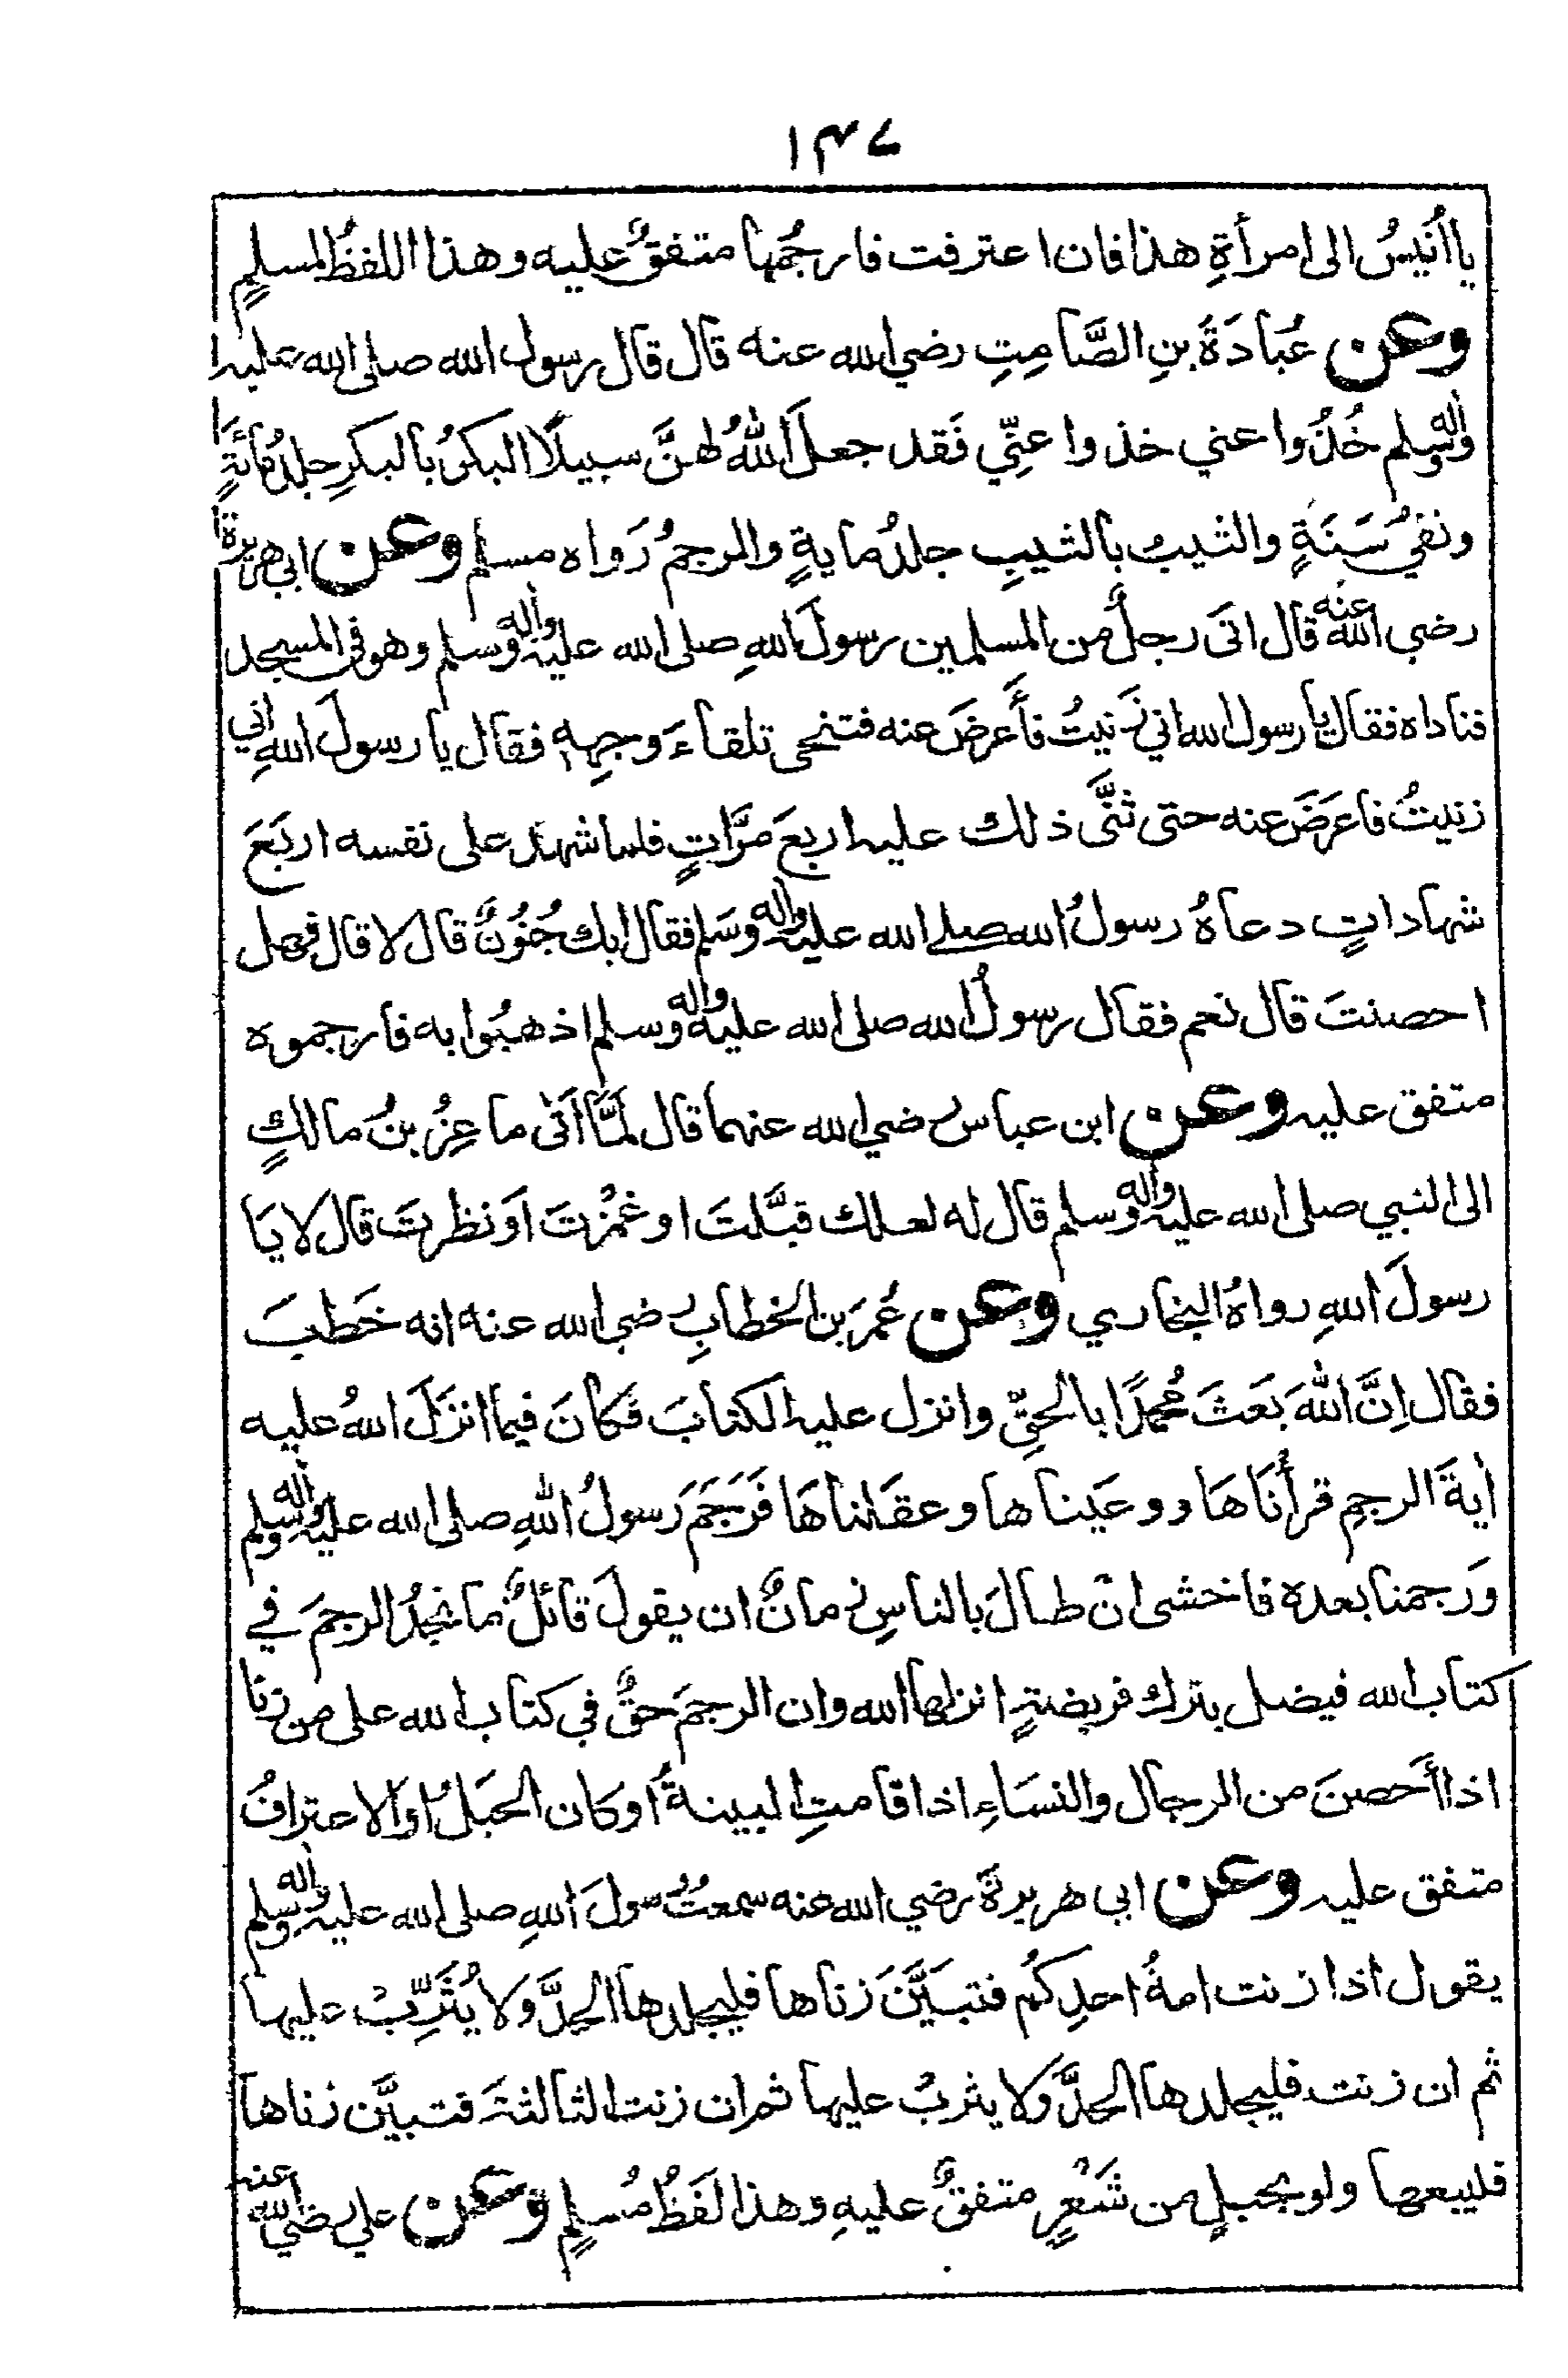 ١٣٧
يا أُنَيسُ الى امرأةِ هذا فان اعترفت فارجُمها متفقٌ عليه وهذا اللفظُ لمسلمٍ
وعن عُبَادَةَ بنِ الصَّامِتِ رضي الله عنه قال قال رسول الله صلى الله عليه
واٰله وسلم خُذُوا عني خذوا عنِّي فَقد جعلَ اللهُ لهنَّ سبيلًا البكرُ بالبكرِ جلدُ مائةٍ
ونفيُ سَنَةٍ والثيبُ بالثيبِ جلدُ مايةٍ والرجمُ رَواه مسلم وعن ابي هريرة
رضي الله عنه قال اتَى رجلٌ من المسلمين رسولَ اللهِ صلى الله عليه واٰله وسلم وهو في المسجد
فناداه فقال يا رسول الله اني زَنيتُ فأَعرضَ عنه فتنحى تلقاءَ وجهِهِ فقال يا رسولَ اللهِ اني
زنيتُ فاعرَضَ عنه حتى ثنَّى ذلك عليه اربعَ مرَّاتٍ فلما شهد على نفسه اربَعَ
شهاداتٍ دعاهُ رسولُ الله صلى الله عليه واٰله وسَلم فقال ابك جُنُونٌ قال لا قال فهل
احصنتَ قال نعم فقال رسولُ الله صلى الله عليه واٰله وسلم اذهبُوا به فارجموه
متفق عليه وعن ابن عباس رضي الله عنهما قال لمَّا اَتَى ماعِزُ بنُ مالكٍ
الى النبي صلى الله عليه واٰله وسلم قال له لعلك قبَّلتَ او غمزْتَ اَو نظرتَ قال لا يَا
رسولَ اللهِ رواهُ البخاري وعن عُمَرَ بن الخطابِ رضي الله عنه انه خَطبَ
فقال اِنَّ اللهَ بَعَثَ مُحمدًا بالحقِّ وانزل عليه الكتابَ فَكانَ فيما انزَلَ اللهُ عليه
اٰيةَ الرجمِ قرأْنَاهَا ووعَيناها وعقَلناهَا فَرَجَمَ رَسولُ اللهِ صلى الله عليه واٰله وسلم
وَرجمنا بعده فاخشى ان طالَ بالناسِ زمانٌ ان يقولَ قائلٌ ما نجدُ الرجمَ في
كتاب الله فيضل بترك فريضةٍ انزلها الله وان الرجمَ حقٌّ في كتاب الله على من زنا
اذا أَحصنَ من الرجال والنسَاءِ اذا قامتِ البينةُ اَو كان الحَبَلُ اَو الاعترافُ
متفق عليه وعن ابي هريرةَ رضي الله عنه سمعتُ رسولَ اللهِ صلى الله عليه واٰله وسلم
يقول اذا زنت امةُ احدِكُم فتبيَّنَ زناها فليجلدها الحدَّ وَلا يُثَرِّبْ عليها
ثم ان زنت فليجلدها الحدَّ ولا يثربْ عليها ثم ان زنت الثالثةَ فتبيَّن زناها
فليبعها ولو بحبلٍ من شَعْرٍ متفقٌ عليهِ وهذا لفَظُ مُسلمٍ وعن علي رضي الله عنه